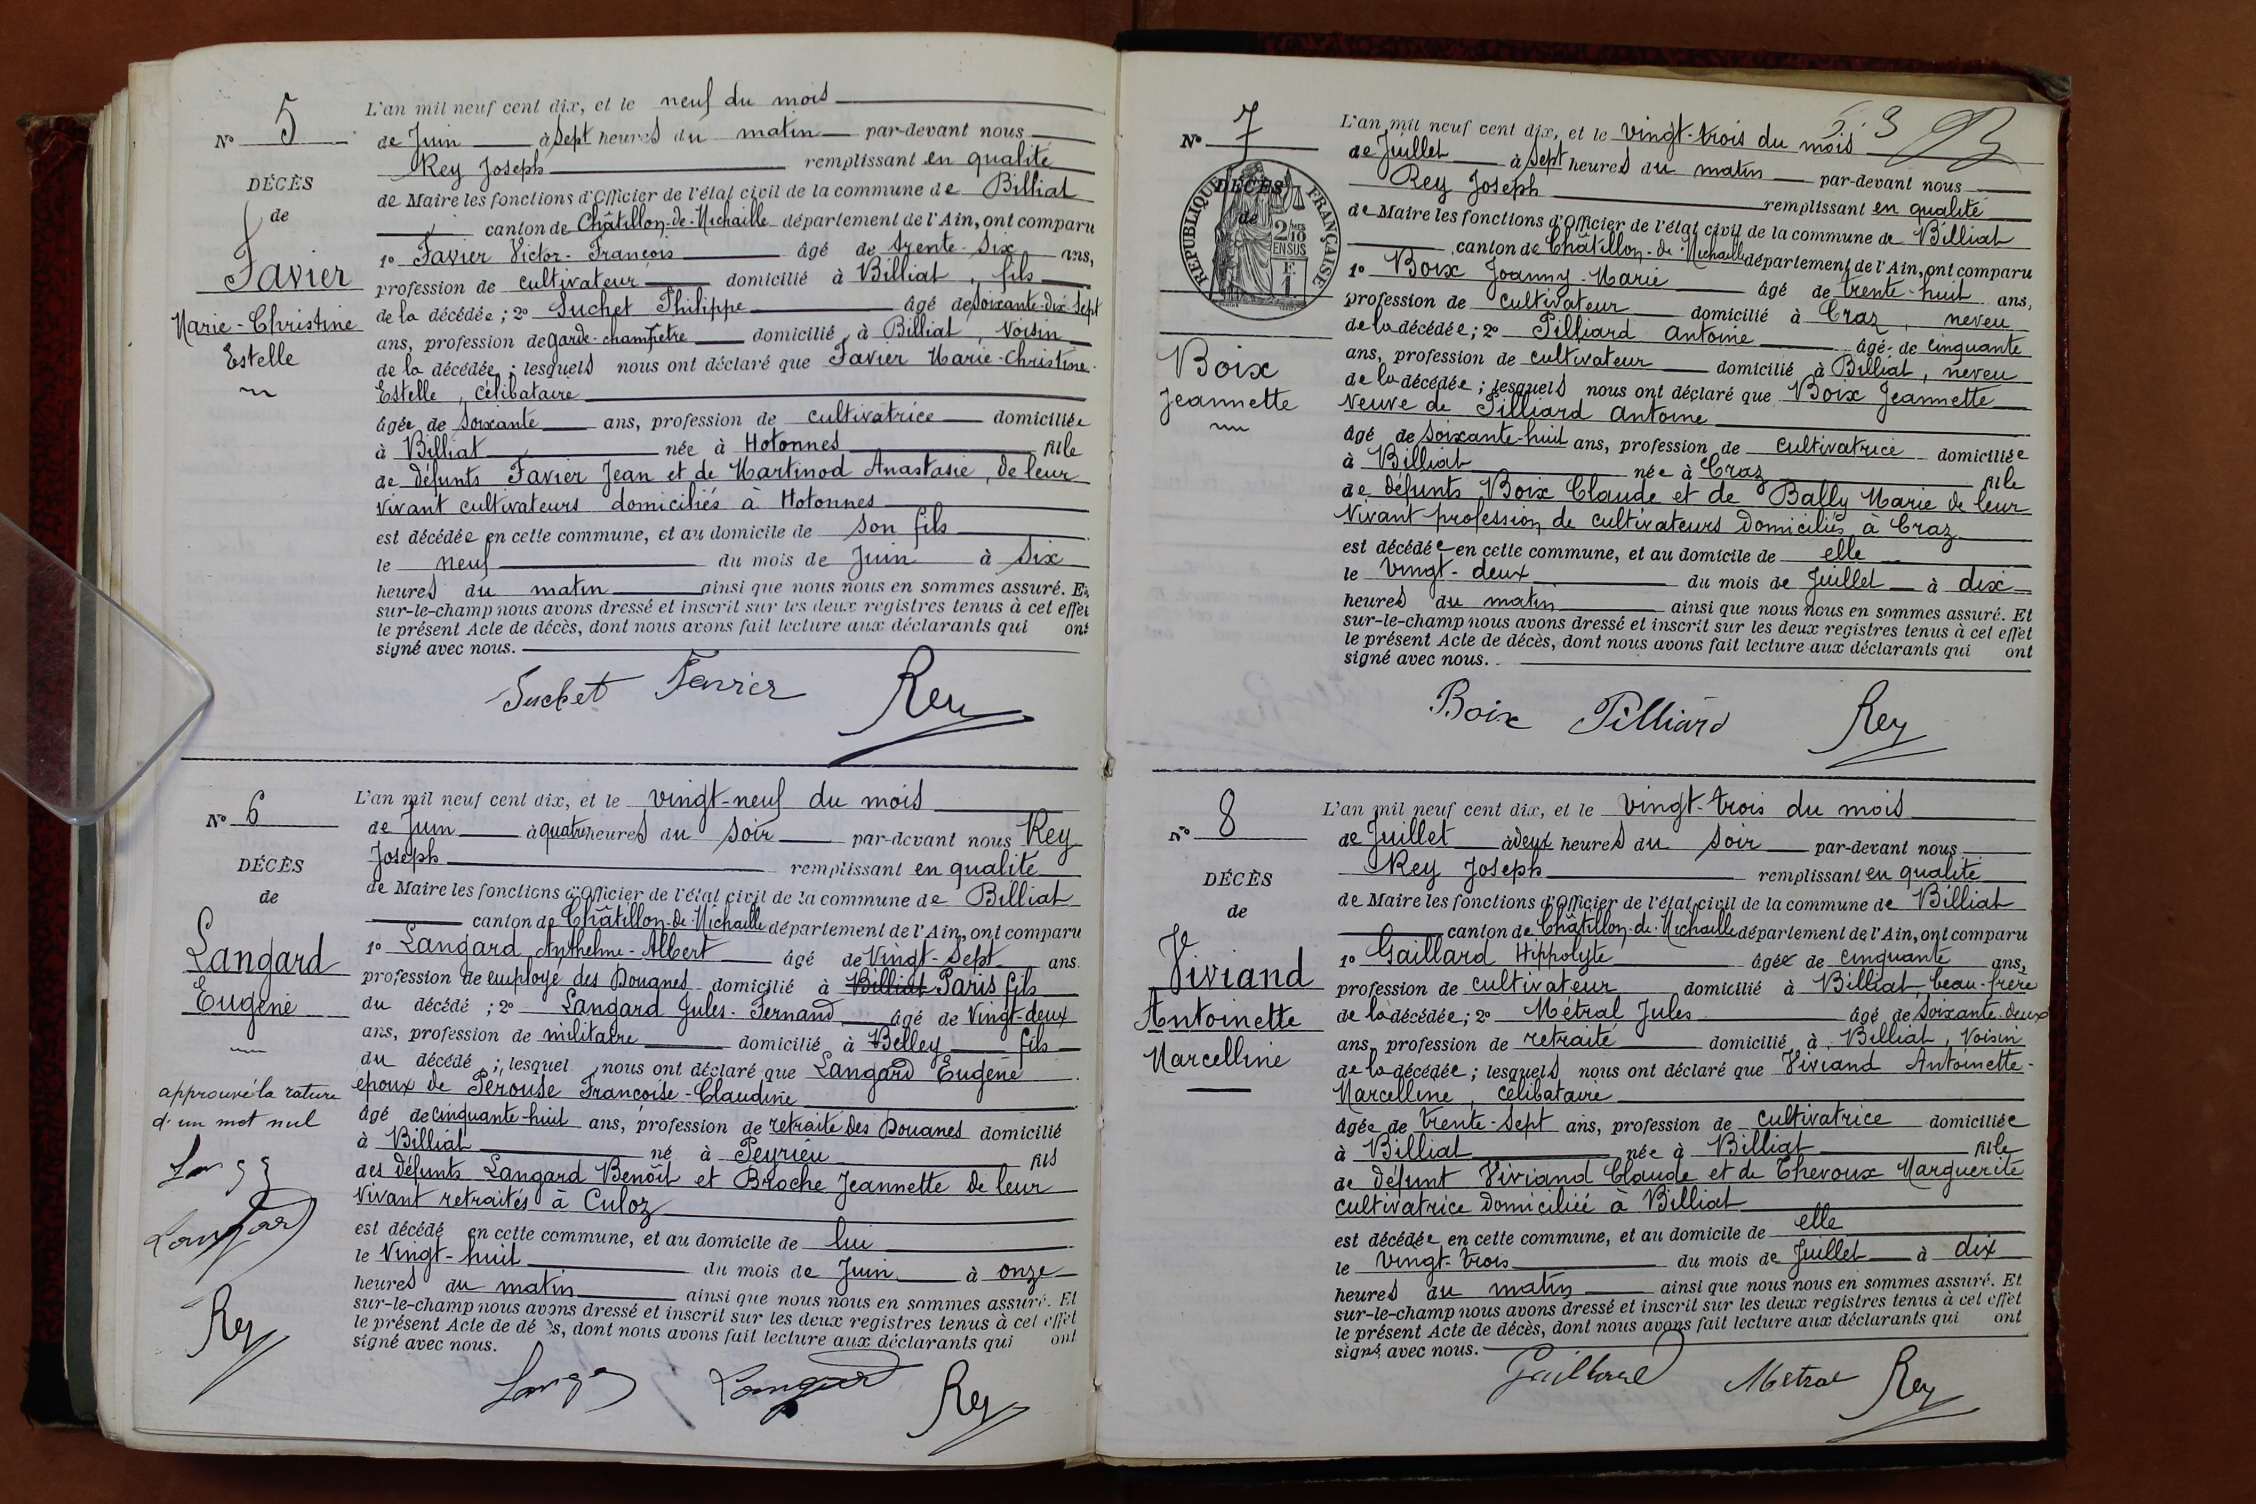 N° 5
DÉCÈS
de
Favier
Marie-Christine
Estelle
L'an mil neuf cent dix, et le neuf du mois
de Juin à sept heures du matin par-devant nous
Rey Joseph remplissant en qualité
de Maire les fonctions d'Officier de l'état civil de la commune de Billiat
canton de Châtillon-de-Michaille département de l'Ain, ont comparu
1° Favier Victor-François âgé de trente-six ans,
profession de cultivateur domicilié à Billiat, fils
de la décédée ; 2° Suchet Philippe âgé de soixante-dix-sept
ans, profession de garde-champêtre domicilié à Billiat, voisin
de la décédée ; lesquels nous ont déclaré que Favier Marie-Christine-
Estelle, célibataire
âgée de soixante ans, profession de cultivatrice domiciliée
à Billiat née à Hotonnes fille
de défunts Favier Jean et de Martinod Anastasie, de leur
vivant cultivateurs domiciliés à Hotonnes
est décédée en cette commune, et au domicile de son fils
le neuf du mois de Juin à six
heures du matin ainsi que nous nous en sommes assuré. Et
sur-le-champ nous avons dressé et inscrit sur les deux registres tenus à cet effet
le présent Acte de décès, dont nous avons fait lecture aux déclarants qui ont
signé avec nous.
Suchet Favier Rey
N° 6
DÉCÈS
de
Langard
Eugène
approuvé la rature
d'un mot nul
Langard
Rey
L'an mil neuf cent dix, et le vingt-neuf du mois
de Juin à quatre heures du soir par-devant nous Rey
Joseph remplissant en qualité
de Maire les fonctions d'Officier de l'état civil de la commune de Billiat
canton de Châtillon-de-Michaille département de l'Ain, ont comparu
1° Langard Anthelme-Albert âgé de vingt-sept ans
profession de employé des Douanes domicilié à Billiat Paris fils
du décédé ; 2° Langard Jules-Fernand âgé de vingt-deux
ans, profession de militaire domicilié à Belley fils
du décédé ; lesquel nous ont déclaré que Langard Eugène
époux de Pérouse Françoise-Claudine
âgé de cinquante-huit ans, profession de retraité des Douanes domicilié
à Billiat né à Peyrieu fils
des défunts Langard Benoît et Broche Jeannette de leur
vivant retraités à Culoz
est décédé en cette commune, et au domicile de lui
le vingt-huit du mois de Juin à onze
heures du matin ainsi que nous nous en sommes assuré. Et
sur-le-champ nous avons dressé et inscrit sur les deux registres tenus à cet effet
le présent Acte de décès, dont nous avons fait lecture aux déclarants qui ont
signé avec nous.
Langard Rey
N° 7
DÉCÈS
de
RÉPUBLIQUE FRANÇAISE
2/10
EN SUS
Boix
Jeannette
L'an mil neuf cent dix, et le vingt-trois du mois
de Juillet à sept heures du matin par-devant nous
Rey Joseph remplissant en qualité
de Maire les fonctions d'Officier de l'état civil de la commune de Billiat
canton de Châtillon-de-Michaille département de l'Ain, ont comparu
1° Boix Joanny-Marie âgé de trente-huit ans,
profession de cultivateur domicilié à Craz, neveu
de la décédée ; 2° Pilliard Antoine âgé de cinquante
ans, profession de cultivateur domicilié à Billiat, neveu
de la décédée ; lesquels nous ont déclaré que Boix Jeannette
veuve de Pilliard Antoine
âgé de soixante-huit ans, profession de cultivatrice domiciliée
à Billiat née à Craz fille
de défunts Boix Claude et de Bally Marie de leur
vivant profession de cultivateurs domiciliés à Craz
est décédée en cette commune, et au domicile de elle
le vingt-deux du mois de Juillet à dix
heures du matin ainsi que nous nous en sommes assuré. Et
sur-le-champ nous avons dressé et inscrit sur les deux registres tenus à cet effet
le présent Acte de décès, dont nous avons fait lecture aux déclarants qui ont
signé avec nous.
Boix Pilliard Rey
N° 8
DÉCÈS
de
Viviand
Antoinette
Marcelline
L'an mil neuf cent dix, et le vingt-trois du mois
de Juillet à deux heures du soir par-devant nous
Rey Joseph remplissant en qualité
de Maire les fonctions d'Officier de l'état civil de la commune de Billiat
canton de Châtillon-de-Michaille département de l'Ain, ont comparu
1° Gaillard Hippolyte âgée de cinquante ans,
profession de cultivateur domicilié à Billiat, beau-frère
de la décédée ; 2° Métral Jules âgé de soixante-deux
ans, profession de retraité domicilié à Billiat, voisin
de la décédée ; lesquels nous ont déclaré que Viviand Antoinette-
Marcelline, célibataire
âgée de trente-sept ans, profession de cultivatrice domiciliée
à Billiat née à Billiat fille
de défunt Viviand Claude et de Thevoux Marguerite
cultivatrice domiciliée à Billiat
est décédée en cette commune, et au domicile de elle
le vingt-trois du mois de Juillet à dix
heures du matin ainsi que nous nous en sommes assuré. Et
sur-le-champ nous avons dressé et inscrit sur les deux registres tenus à cet effet
le présent Acte de décès, dont nous avons fait lecture aux déclarants qui ont
signé avec nous.
Gaillard Métral Rey